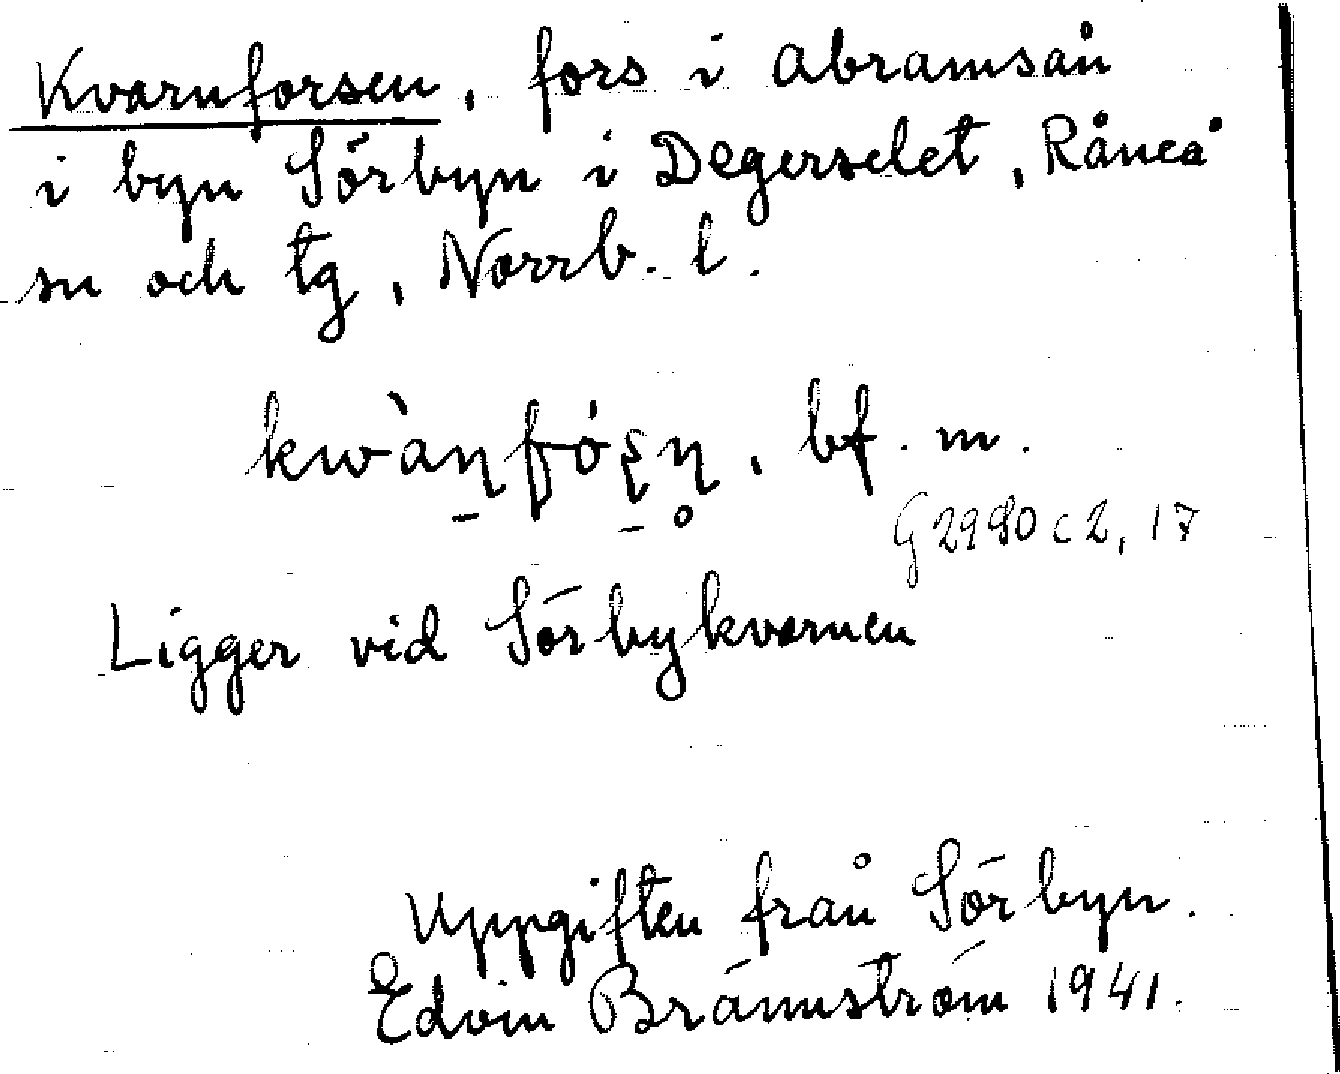 Kvarnforsen, fors i Abramsån
i byn Sörbyn i Degerselet, Råneå
sn och tg, Norrb. l.
kwàn̠fós̠n̥, bf. m.
G 2980 c 2, 17
Ligger vid Sörbykvarnen
Uppgiften från Sörbyn.
Edvin Brännström 1941.